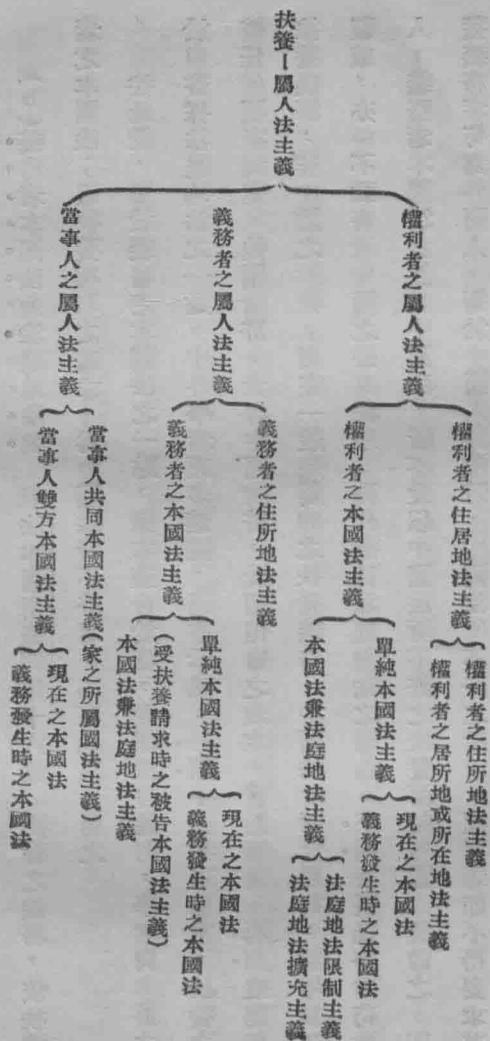 扶養—屬人法主義
權利者之屬人法主義
權利者之住居地法主義
權利者之住所地法主義
權利者之居所地或所在地法主義
權利者之本國法主義
單純本國法主義
現在之本國法
義務發生時之本國法
本國法兼法庭地法主義
法庭地法限制主義
法庭地法擴充主義
義務者之屬人法主義
義務者之住所地法主義
義務者之本國法主義
單純本國法主義
現在之本國法
義務發生時之本國法
(受扶養請求時之被告本國法主義)
本國法兼法庭地法主義
當事人之屬人法主義
當事人共同本國法主義(家之所屬國法主義)
當事人雙方本國法主義
現在之本國法
義務發生時之本國法